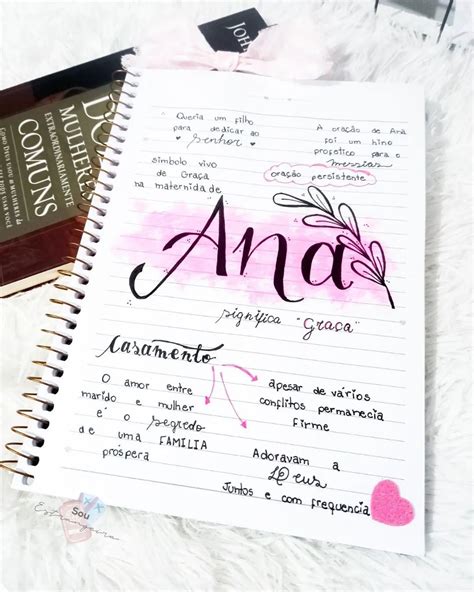 JOHN
DOZE
MULHERES
EXTRAORDINARIAMENTE
COMUNS
Queria um filho
para dedicar ao
senhor
A oração de Ana
foi um hino
profetico para o
messias
simbolo vivo
de Graça
na maternida de
oração persistente
Ana
significa "Graça"
Casamento
O amor entre
marido e mulher
é o segredo
de uma FAMILIA
próspera
apesar de vários
conflitos permanecia
firme
Adoravam a
Deus
juntos e com frequencia
Sou
Estrangeira